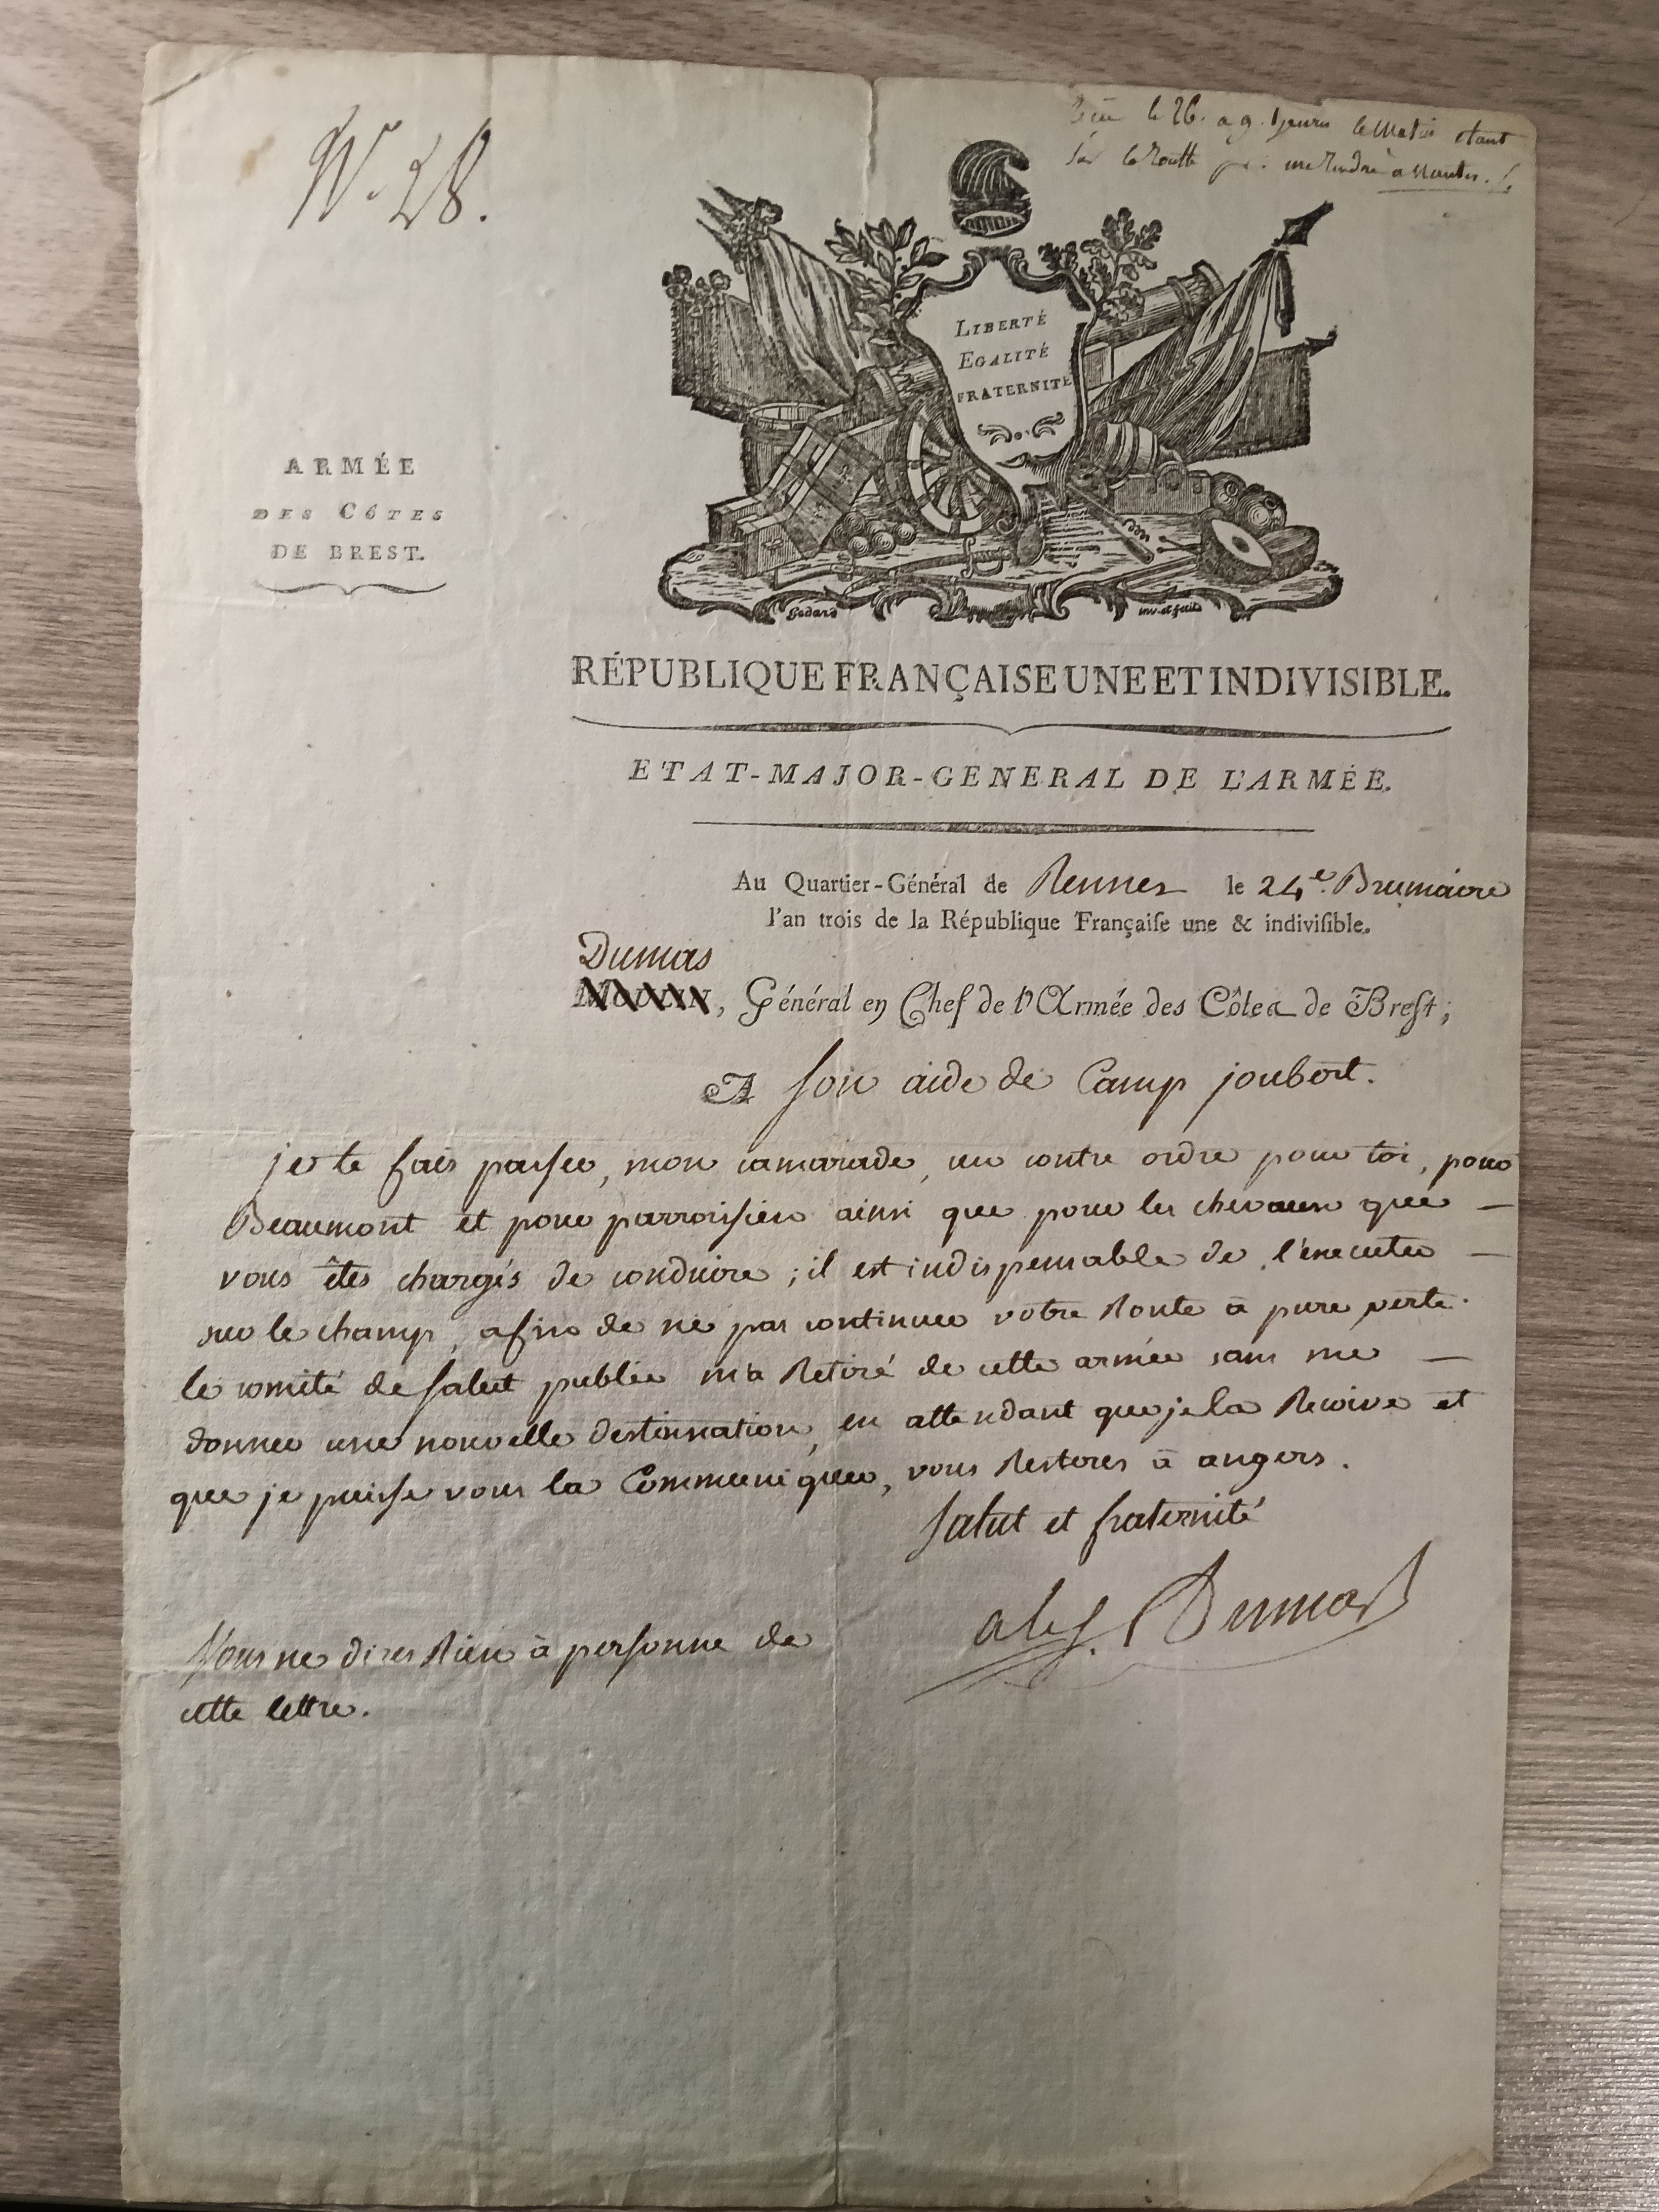 N.° 28.
le 26. a 9. heures le Matin etant
Sur la Routte pour me Rendre a Nantes.
LIBERTÉ
EGALITÉ
FRATERNITÉ
ARMÉE
DES CÔTES
DE BREST.
Godard inv. et fecit
RÉPUBLIQUE FRANÇAISE UNE ET INDIVISIBLE.
ETAT-MAJOR-GENERAL DE L'ARMÉE.
Au Quartier-Général de Rennes le 24.e Brumaire
l'an trois de la République Françaiſe une & indiviſible.
Dumas
, Général en Chef de l'Armée des Côtes de Breſt;
A son aide de Camp joubert.
je te fais passer, mon camarade, un contre ordre pour toi, pour
Beaumont et pour parroissien ainsi que pour les chevaux que
vous êtes chargés de conduire; il est indispensable de l'executer
sur le champ, afin de ne pas continuer votre Route à pure perte.
le comité de Salut public m'a Retiré de cette armée sans me
donner une nouvelle destination, en attendant que je la Recoive et
que je puisse vous la Communiquer, vous Resteres à angers.
Salut et fraternité
Vous ne dires Rien à personne de
cette lettre.
alex. Dumas